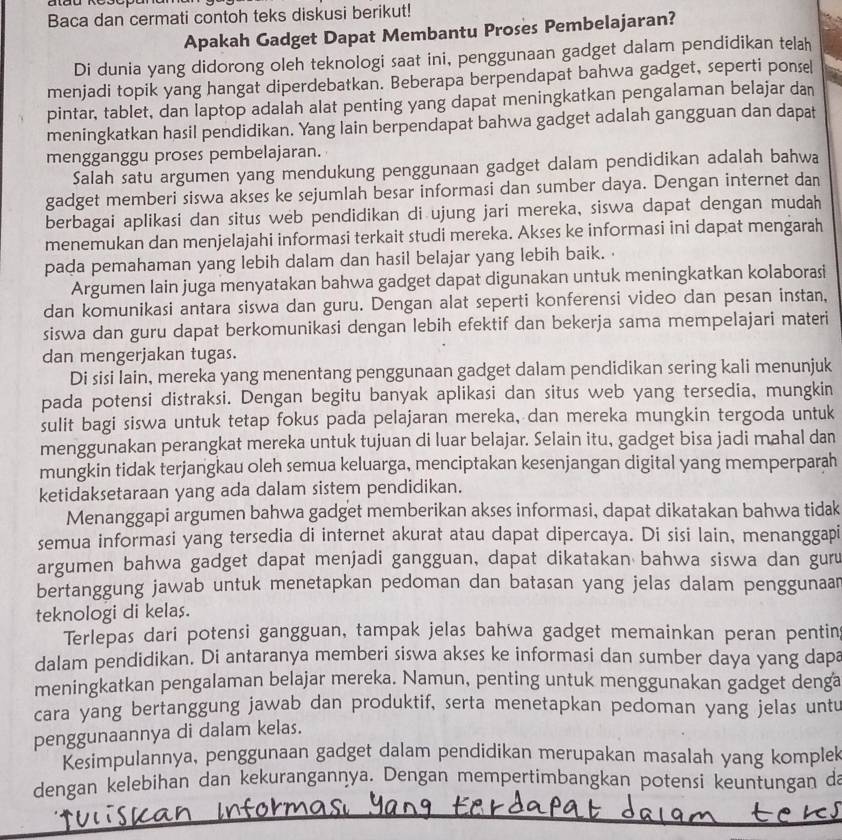 Baca dan cermati contoh teks diskusi berikut!
Apakah Gadget Dapat Membantu Proses Pembelajaran?
Di dunia yang didorong oleh teknologi saat ini, penggunaan gadget dalam pendidikan telah
menjadi topik yang hangat diperdebatkan. Beberapa berpendapat bahwa gadget, seperti ponsel
pintar, tablet, dan laptop adalah alat penting yang dapat meningkatkan pengalaman belajar dan
meningkatkan hasil pendidikan. Yang lain berpendapat bahwa gadget adalah gangguan dan dapat
mengganggu proses pembelajaran.
Salah satu argumen yang mendukung penggunaan gadget dalam pendidikan adalah bahwa
gadget memberi siswa akses ke sejumlah besar informasi dan sumber daya. Dengan internet dan
berbagai aplikasi dan situs web pendidikan di ujung jari mereka, siswa dapat dengan mudah
menemukan dan menjelajahi informasi terkait studi mereka. Akses ke informasi ini dapat mengarah
pada pemahaman yang lebih dalam dan hasil belajar yang lebih baik.
Argumen lain juga menyatakan bahwa gadget dapat digunakan untuk meningkatkan kolaborasi
dan komunikasi antara siswa dan guru. Dengan alat seperti konferensi video dan pesan instan,
siswa dan guru dapat berkomunikasi dengan lebih efektif dan bekerja sama mempelajari materi
dan mengerjakan tugas.
Di sisi lain, mereka yang menentang penggunaan gadget dalam pendidikan sering kali menunjuk
pada potensi distraksi. Dengan begitu banyak aplikasi dan situs web yang tersedia, mungkin
sulit bagi siswa untuk tetap fokus pada pelajaran mereka, dan mereka mungkin tergoda untuk
menggunakan perangkat mereka untuk tujuan di luar belajar. Selain itu, gadget bisa jadi mahal dan
mungkin tidak terjangkau oleh semua keluarga, menciptakan kesenjangan digital yang memperparah
ketidaksetaraan yang ada dalam sistem pendidikan.
Menanggapi argumen bahwa gadget memberikan akses informasi, dapat dikatakan bahwa tidak
semua informasi yang tersedia di internet akurat atau dapat dipercaya. Di sisi lain, menanggapi
argumen bahwa gadget dapat menjadi gangguan, dapat dikatakan bahwa siswa dan guru
bertanggung jawab untuk menetapkan pedoman dan batasan yang jelas dalam penggunaan
teknologi di kelas.
Terlepas dari potensi gangguan, tampak jelas bahwa gadget memainkan peran pentin
dalam pendidikan. Di antaranya memberi siswa akses ke informasi dan sumber daya yang dapa
meningkatkan pengalaman belajar mereka. Namun, penting untuk menggunakan gadget denga
cara yang bertanggung jawab dan produktif, serta menetapkan pedoman yang jelas untu
penggunaannya di dalam kelas.
Kesimpulannya, penggunaan gadget dalam pendidikan merupakan masalah yang komplek
dengan kelebihan dan kekurangannya. Dengan mempertimbangkan potensi keuntungan da
tuliskan informasi yang terdapat dalam teks